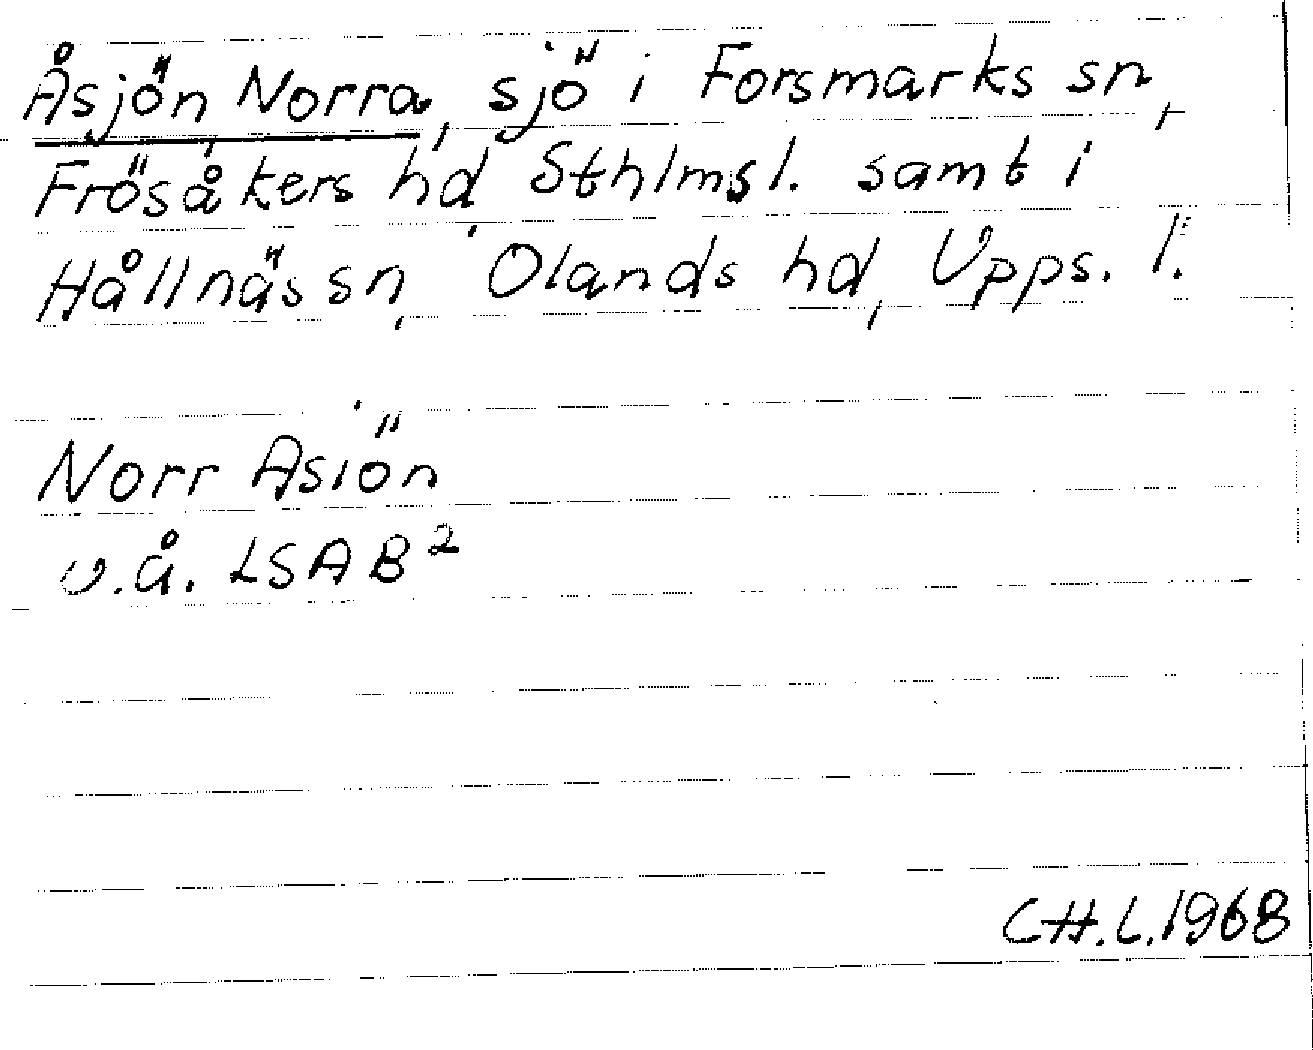 Åsjön Norra, sjö i Forsmarks sn,
Frösåkers hd Sthlmsl. samt i
Hållnäs sn, Olands hd, Upps. l.
Norr Asiön
u.å. LSA B²
CH.L.1968